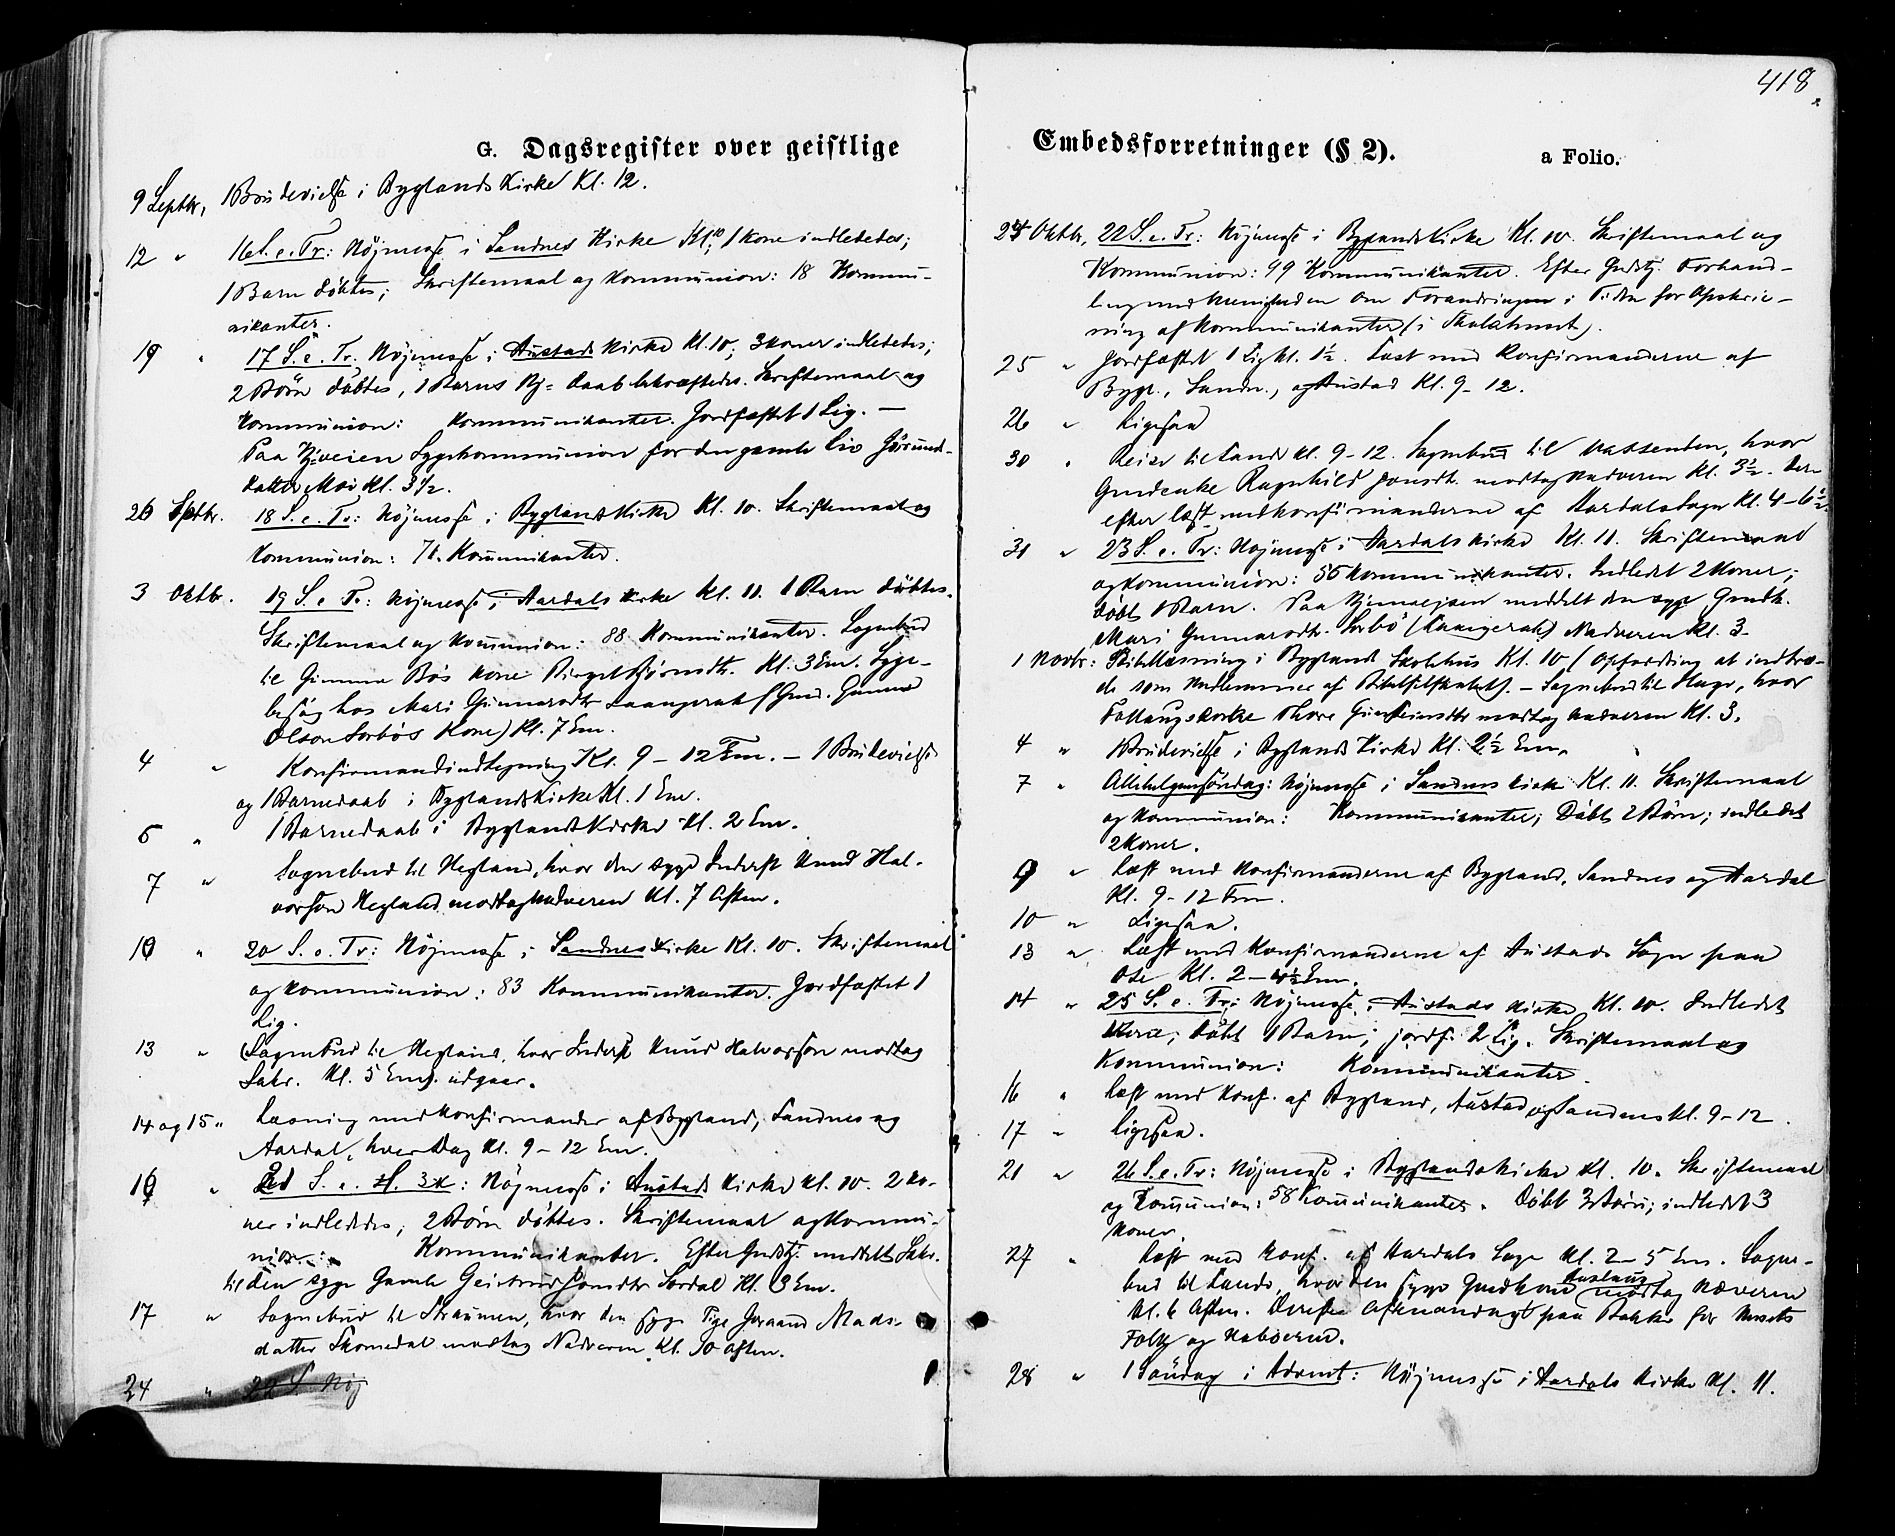 G. Dagsregister over geistlige
9 Septbr, 1 Brudevielse i Byglands Kirke Kl. 12.
12 " 16 S. e. Tr: Højmesse i Sandnes Kirke Kl. 10; 1 Kone indlededes;
1 Barn døbtes; Skriftemaal og Kommunion: 18 Kommu-
nikanter.
19 " 17 S. e. Tr. Højmesse i Austad Kirke Kl. 10; 3 Koner indlededes;
2 Børn døbtes, 1 Barns Hj= daab bekræftedes. Skriftemaal og
Kommunion: Kommunikanter. Jordfæstet 1 Lig. —
Paa Hjveien Sygekommunion for den gamle Liv
datter Moi Kl. 3½.
26 Septbr. 18 S. e. Tr: Højmesse i Bygland Kirke Kl. 10. Skriftemaal og
Kommunion: 71. Kommunikanter.
3 Oktb. 19 S. e. Tr: Højmesse i Aardals Kirke Kl. 11. 1 Barn døbtes.
Skriftemaal og Kommunion: 88 Kommunikanter. Sognebud
til Gunnar Bøs Kone Birgit Bjørnsdtr. Kl. 3 Em. Syge-
besøg hos Mari Gunnarsdtr Laangerak (Gmd. Gunnar
Olson Sorbøs Kone) Kl. 7 Em.
4 " Konfirmandindtegning Kl. 9 – 12 Fm. – 1 Brudevielse
og 1 Barnedaab i Byglands Kirke Kl. 1 Em.
5 " 1 Barnedaab i Byglands Kirke Kl. 2 Em.
7 " Sognebud til Hegland, hvor den syge Inderst Knud Hal-
vorson Hegland modtog Nadveren Kl. 7 Aften.
10 " 20 S. e. Tr: Højmesse i Sandnes Kirke Kl. 10. Skriftemaal
og Kommunion: 83 Kommunikanter. Jordfæstet 1
Lig.
13 " (Sognebud til Hegland, hvor Inderst Knud Halvorson modtog
Sakr. Kl. 5 Em). udgaar.
14 og 15 " Læsning med Konfirmander af Bygland, Sandnes og
Aardal, hver Dag Kl. 9 – 12 Em.
S. e. : Højmesse i Austad Kirke Kl. 10. 2 Ko-
ner indlededes, 2 Børn døbtes. Skriftemaal og Kommu-
nion: Kommunikanter. Efter Gudstj. meddelt Sakr.
til den syge Gamle Jonsdtr Kl. 3 Em.
17 " Sognebud til Straumen, hvor den syge Pige Mads-
datter Skomedal modtog Nadveren Kl. 10 Aften.
24 " 22 S. Høj
418
Embedsforretninger (§ 2). a Folio.
24 Oktbr, 22 S. e. Tr: Højmesse i Byglands Kirke Kl. 10. Skriftemaal og
Kommunion: 99 Kommunikanter. Efter Gudstj. Forhand-
ling med Menigheden om Forandringen i Tiden for Opskriv-
ning af Kommunikanter (i Skolehuset).
25 " Jordfæstet 1 Lig Kl. 1½. Læst med Konfirmanderne af
Bygl., Sandn., og Austad Kl. 9 – 12.
26 " Ligesaa
30 " Reise til Sand Kl. 9–12. Sognebud til Vassenden, hvor
Gmdenke Ragnhild Jonsdt. modtog Nadveren Kl. 3½. Der-
efter læst med Konfirmanderne af Aardals Sogn Kl. 4–6½.
31 " 23 S. e. Tr: Højmesse i Aardals Kirke Kl. 11. Skriftemaal
og Kommunion: 55 Kommunikanter. Indledet 2 Koner;
døbt 1 Barn. Paa Hjemveien meddelt den syge Gmdk.
Mari Gunnarsdtr. Sorbø (Laangerak) Nadveren Kl. 3.
1 Novbr: Bibellæsning i Bygland Skolehus Kl. 10 (Opfordring at indtræ-
de som Medlemmer af Bibelselskabet). – Sognebud til Hage, hvor
Thore modtog Nadveren Kl. 3.
4 " 1 Brudevielse i Byglands Kirke Kl. 2½ Em.
7 " Allehelgensøndag: Højmesse i Sandnes Kirke Kl. 11. Skriftemaal
og Kommunion: Kommunikanter; Døbt 2 Børn; indledet
2 Koner.
9 " Læst med Konfirmanderne af Bygland, Sandnes og Aardal
Kl. 9–12 Fm.
10 " Ligesaa.
13 " Læst med Konfirmanderne af Austads Sogn paa
Ose Kl. 2 – 4½ Em.
14 " 25 S. e. Tr: Højmesse i Austads Kirke Kl. 10. Indledet
Kone; Døbt 1 Barn; jordf. 2 Lig. Skriftemaal og
Kommunion: Kommunikanter.
16 " Læst med Konf. af Bygland, Austad og Sandnes Kl. 9–12.
17 " Ligesaa.
21 " 26 S. e. Tr: Højmesse i Byglands Kirke Kl. 10. Skriftemaal
og Kommunion: 58 Kommunikanter. Døbt 3 Børn; indledet 3
Koner.
27 " Læst med Konf. af Aardals Sogn Kl. 2–5 Em. Sogne-
bud til Sands, hvor den syge Gmdkone Aaslaug modtog Nadveren
Kl. 6 Aften. Derefter paa Bakke for Husets
Folk og Naboerne.
28 " 1 Søndag i Advent: Højmesse i Aardals Kirke Kl. 11.